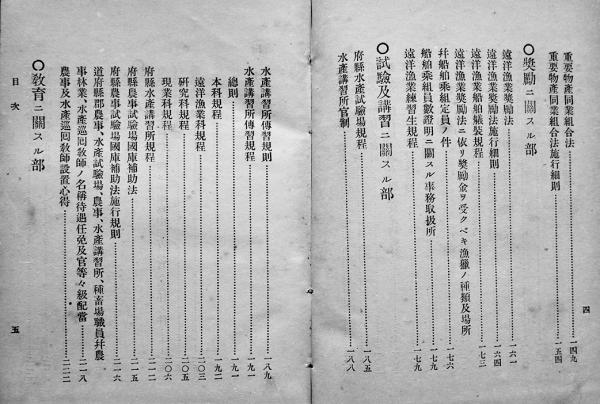 重要物產同業組合法……一四九
重要物產同業組合法施行細則……一五四
○獎勵ニ關スル部
遠洋漁業獎勵法……一六一
遠洋漁業獎勵法施行細則……一六四
遠洋漁業船舶檢裝規程……一七三
遠洋漁業獎勵法ニ依リ獎勵金ヲ受クベキ漁獵ノ種類及場所
幷船舶乘組定員ノ件……一七六
船舶乘組員數證明ニ關スル事務取扱所……一七九
遠洋漁業練習生規程……一七九
○試驗及講習ニ關スル部
府縣水產試驗場規程……一八五
水產講習所官制……一八八
四
水產講習所傳習規則……一八九
水產講習所傳習規程……一九一
總則……一九一
本科規程……一九二
遠洋漁業科規程……二〇三
硏究科規程……二〇五
現業科規程……二〇六
府縣水產講習所規程……二一二
府縣農事試驗場國庫補助法……二一五
府縣農事試驗場國庫補助法施行規則……二一六
道府縣郡農事、水產試驗場、農事、水產講習所、種畜場職員幷農
事林業、水產巡回敎師ノ名稱待遇任免及官等々級配當……二一八
農事及水產巡回敎師設置心得……二二二
○敎育ニ關スル部
目次
五